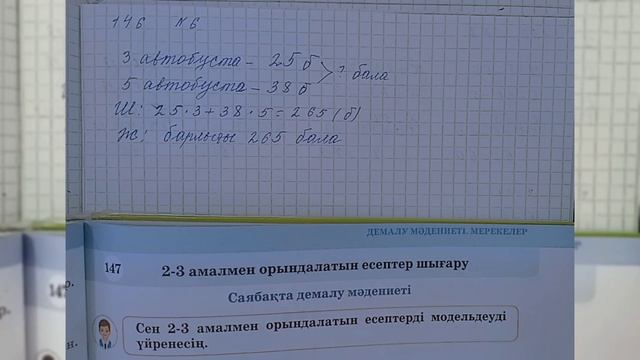 146 №6
3 автобуста - 25 б
? бала
5 автобуста - 38 б
Ш: 25·3+38·5=265 (б)
Ж: барлығы 265 бала
ДЕМАЛУ МӘДЕНИЕТІ. МЕРЕКЕЛЕР
147 2-3 амалмен орындалатын есептер шығару
Саябақта демалу мәдениеті
Сен 2-3 амалмен орындалатын есептерді модельдеуді
үйренесің.